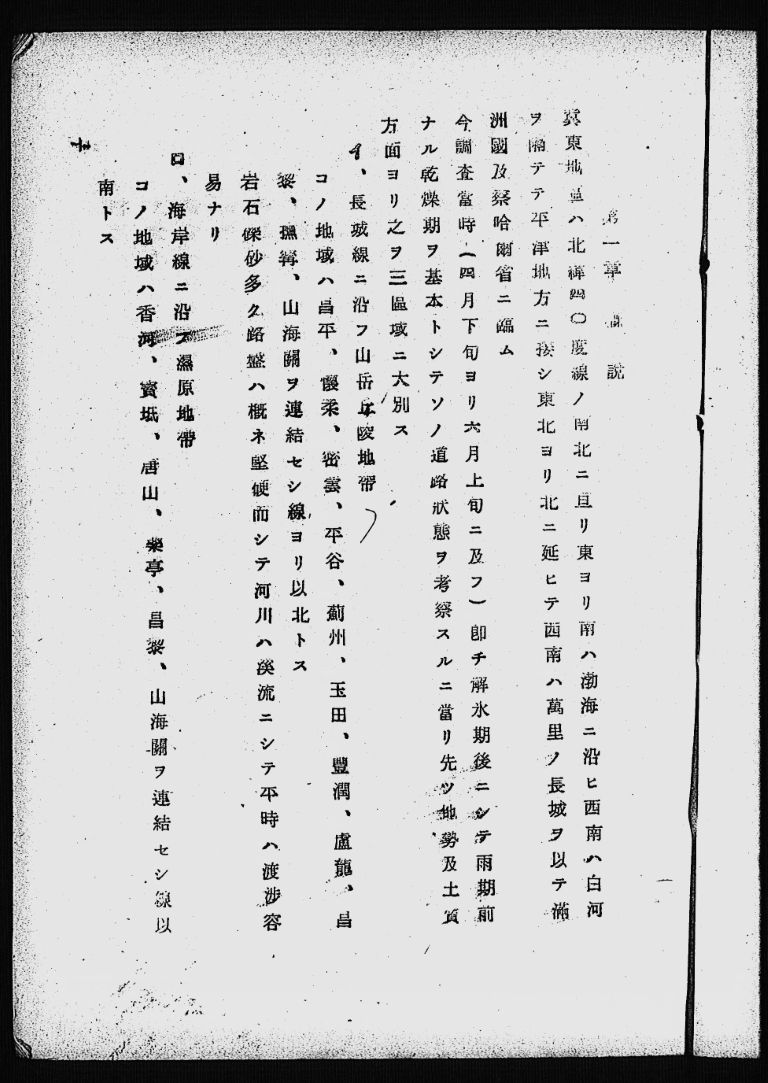 第一章 概說
冀東地區ハ北緯四〇度線ノ南北ニ亘リ東ヨリ南ハ渤海ニ沿ヒ西南ハ白河
ヲ隔テテ平津地方ニ接シ東北ヨリ北ニ延ヒテ西南ハ萬里ノ長城ヲ以テ滿
洲國及察哈爾省ニ臨ム
今調査當時(四月下旬ヨリ六月上旬ニ及フ)卽チ解氷期後ニシテ雨期前
ナル乾燥期ヲ基本トシテソノ道路狀態ヲ考察スルニ當リ先ツ地勢及土質
方面ヨリ之ヲ三區域ニ大別ス
イ、長城線ニ沿フ山岳丘陵地帶
コノ地域ハ昌平、懷柔、密雲、平谷、薊州、玉田、豐潤、盧龍、昌
黎、撫寗、山海關ヲ連結セシ線ヨリ以北トス
岩石礫砂多ク路盤ハ槪ネ堅硬而シテ河川ハ溪流ニシテ平時ハ渡涉容
易ナリ
ロ、海岸線ニ沿フ濕原地帶
コノ地域ハ香河、寳坻、唐山、樂亭、昌黎、山海關ヲ連結セシ線以
南トス